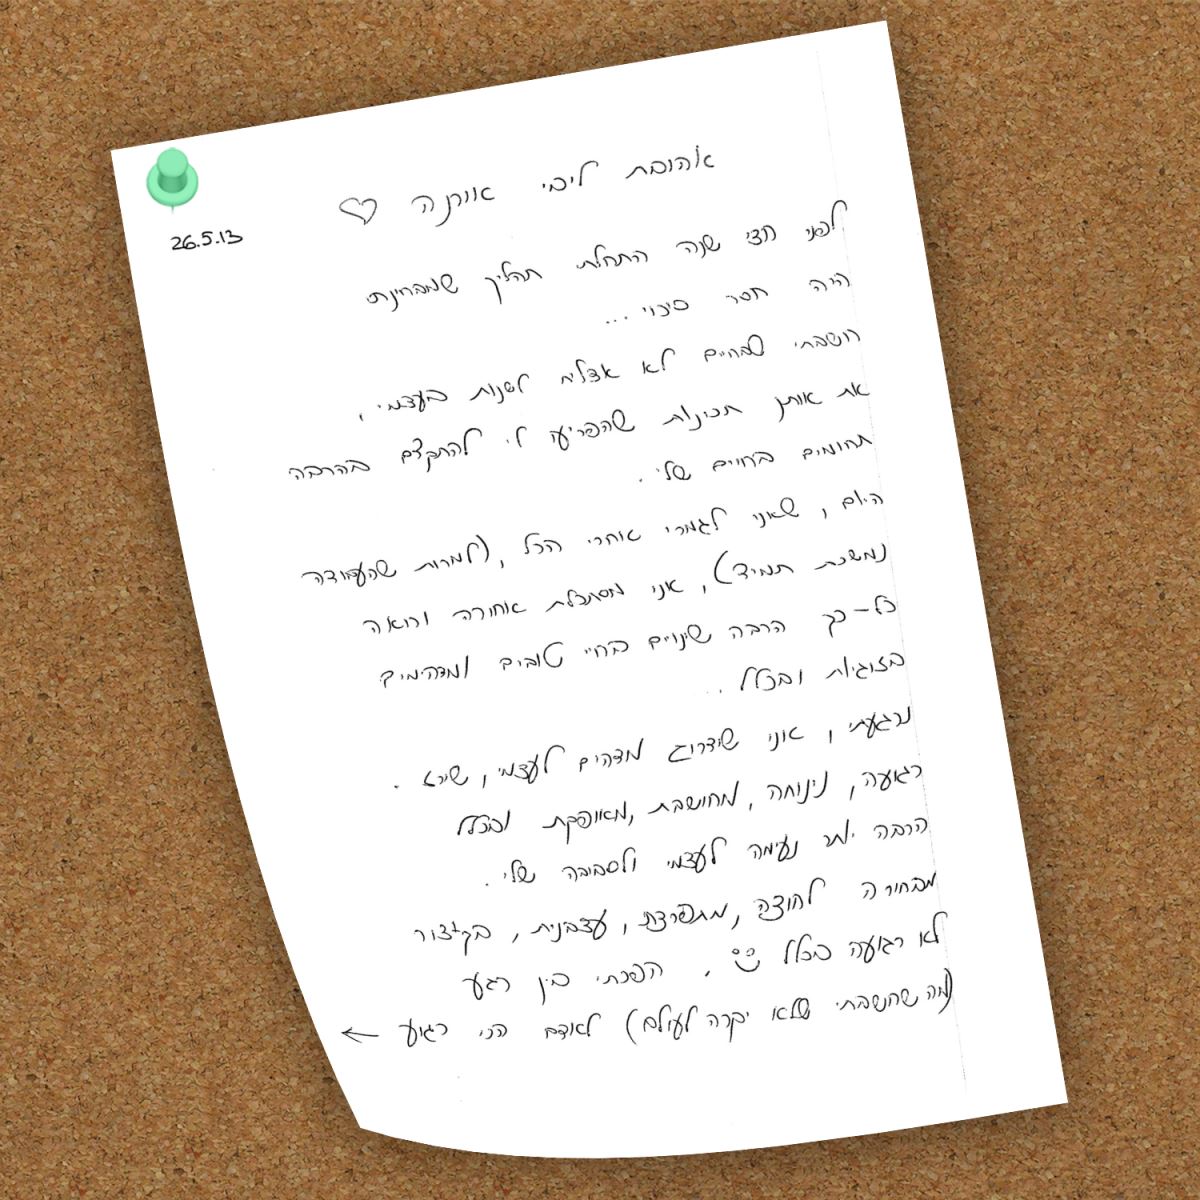 אהובת ליבי אורנה ♡
26.5.13
לפני חצי שנה התחלתי תהליך שמבחינתי
היה חסר סיכוי ...
חשבתי שבחיים לא אצליח לשנות בעצמי,
את אותן תכונות שהפריעו לי להתקדם בהרבה
תחומים בחיים שלי.
היום, שאני לגמרי אחרי הכל, (למרות שהעבודה
נמשכת תמיד), אני מסתכלת אחורה ורואה
כל-כך הרבה שינויים בחיי טובים ומדהימים
בזוגיות ובכלל ...
נרגעתי, אני שידרוג מדהים לעצמי, שירא.
רגועה, נינוחה, מחושבת, מאופקת ובכלל
הרבה יותר נעימה לעצמי ולסביבה שלי.
מבחורה לחוצה, מתפרצת, עצבנית, בקיצור
לא רגועה בכלל ☺. הפכתי בין רגע
(מה שחשבתי שלא יקרה לעולם) לאדם הכי רגוע ←